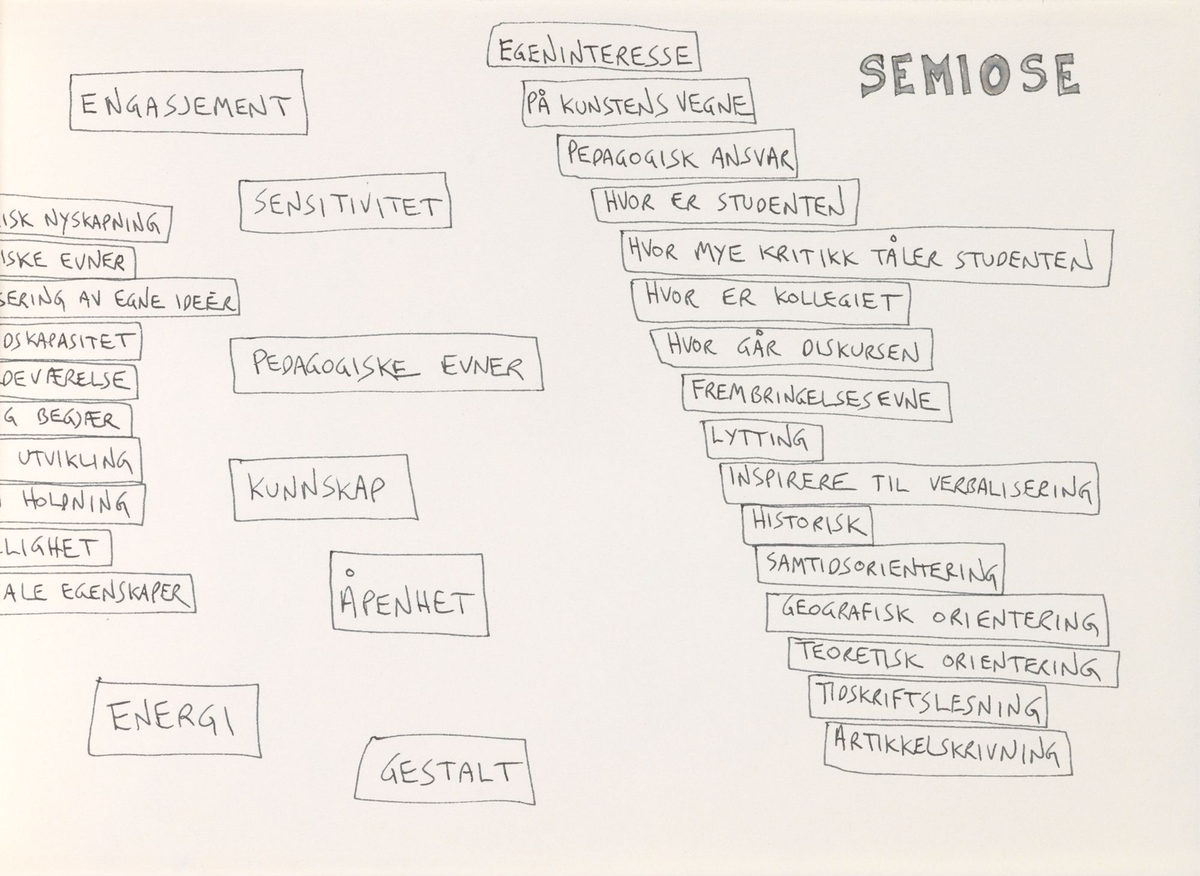 ISK NYSKAPNING
ISKE EVNER
SERING AV EGNE IDEÉR
DSKAPASITET
DEVÆRELSE
G BEGJÆR
UTVIKLING
HOLDNING
LIGHET
ALE EGENSKAPER
ENGASJEMENT
SENSITIVITET
PEDAGOGISKE EVNER
KUNNSKAP
ÅPENHET
ENERGI
GESTALT
SEMIOSE
EGENINTERESSE
PÅ KUNSTENS VEGNE
PEDAGOGISK ANSVAR
HVOR ER STUDENTEN
HVOR MYE KRITIKK TÅLER STUDENTEN
HVOR ER KOLLEGIET
HVOR GÅR DISKURSEN
FREMBRINGELSESEVNE
LYTTING
INSPIRERE TIL VERBALISERING
HISTORISK
SAMTIDSORIENTERING
GEOGRAFISK ORIENTERING
TEORETISK ORIENTERING
TIDSKRIFTSLESNING
ARTIKKELSKRIVNING